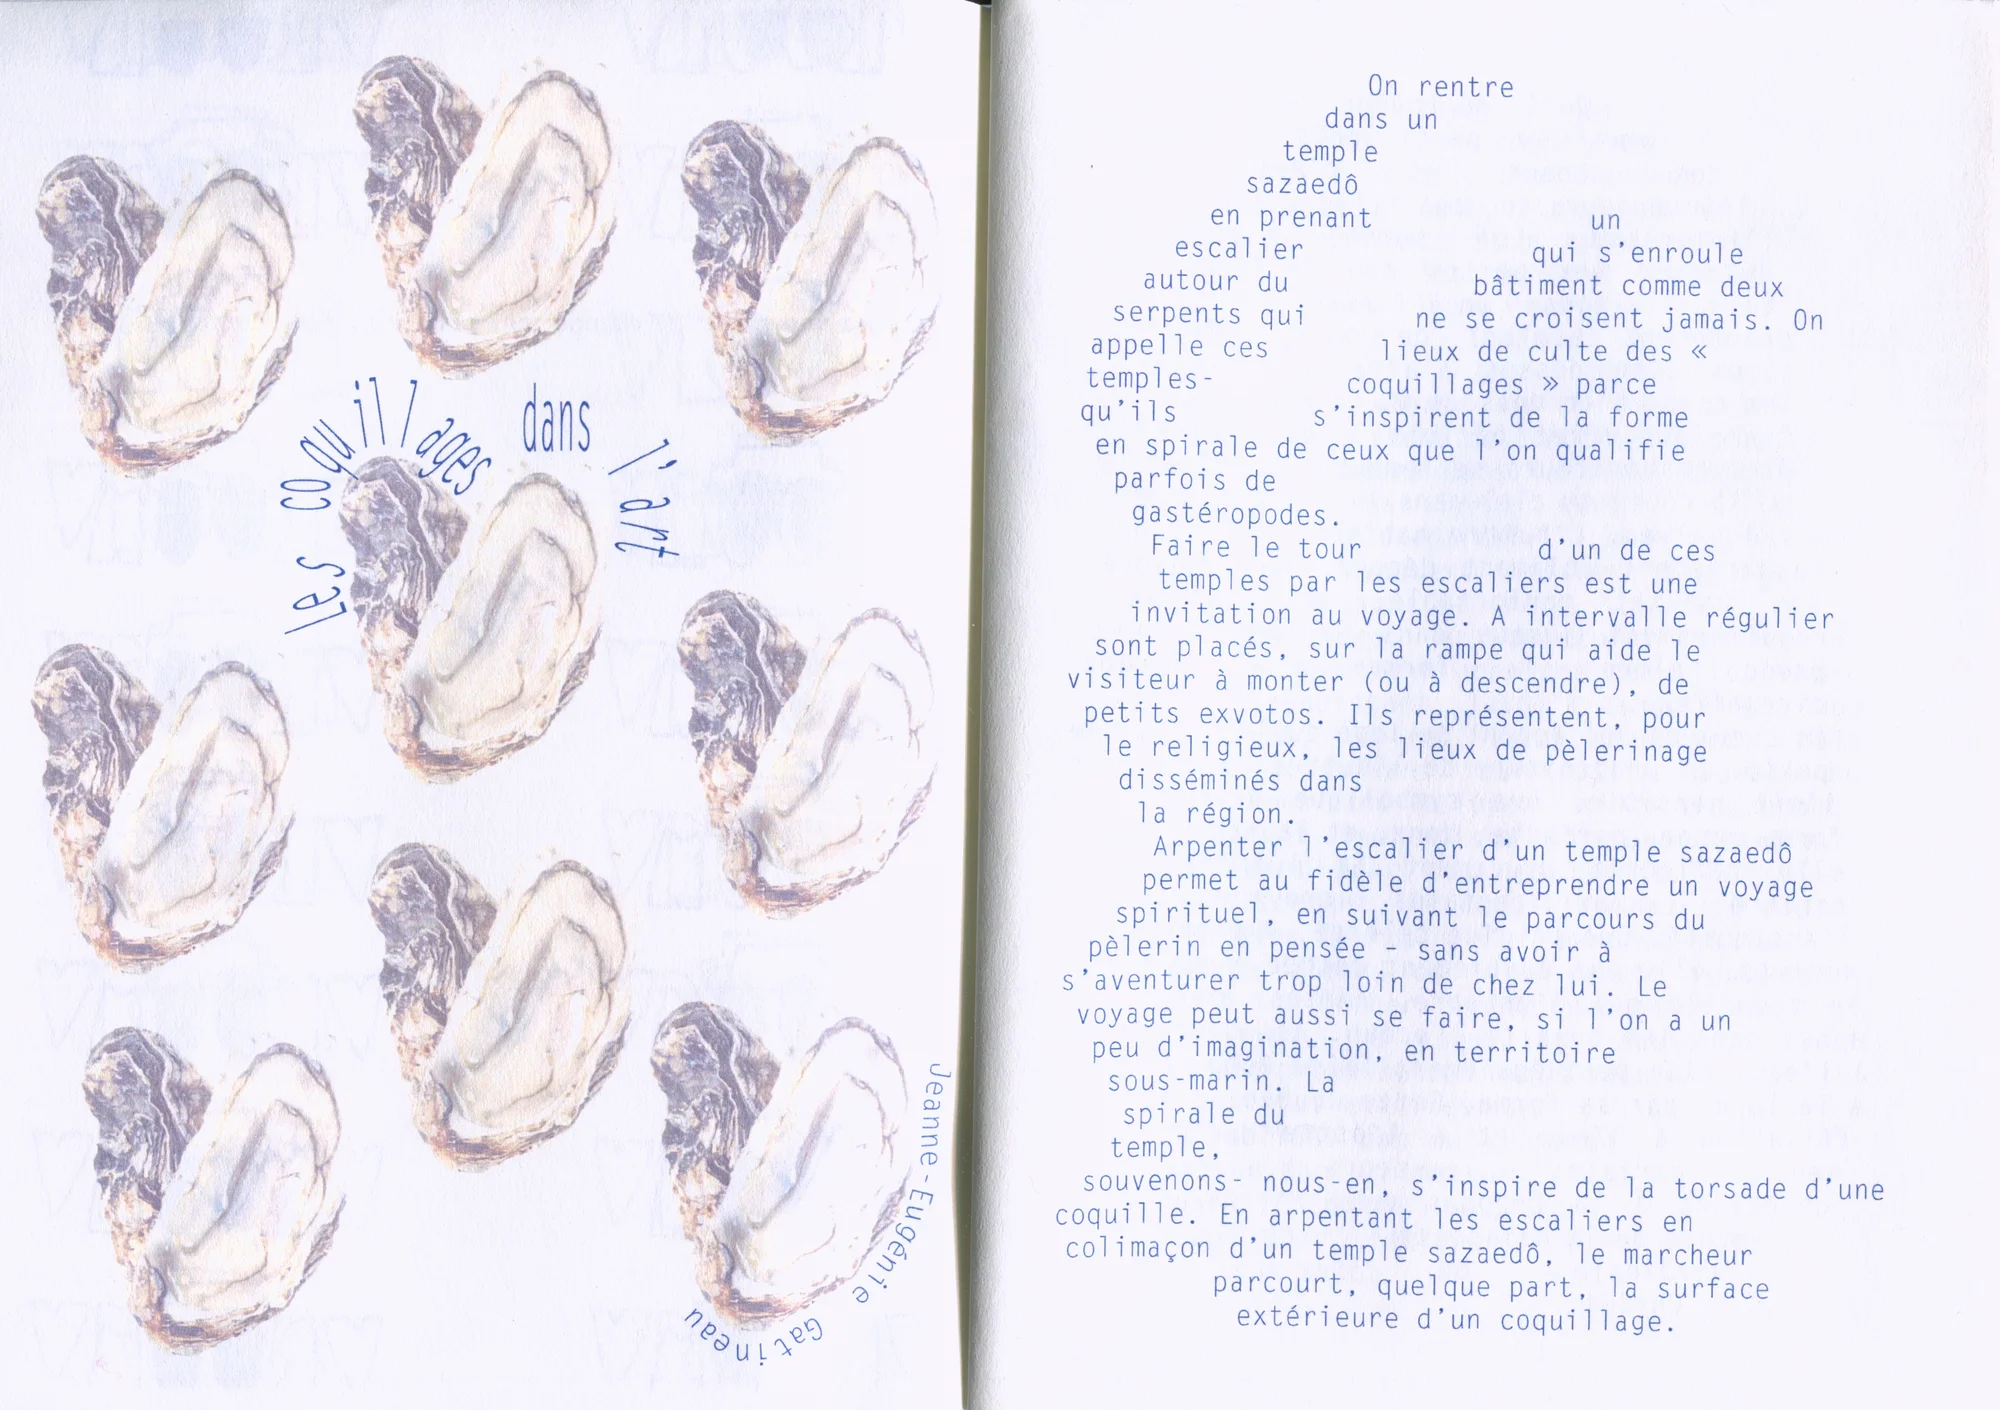 les coquillages dans l'art
Jeanne-Eugénie Gatineau
On rentre
dans un
temple
sazaedô
en prenant un
escalier qui s'enroule
autour du bâtiment comme deux
serpents qui ne se croisent jamais. On
appelle ces lieux de culte des «
temples- coquillages » parce
qu'ils s'inspirent de la forme
en spirale de ceux que l'on qualifie
parfois de
gastéropodes.
Faire le tour d'un de ces
temples par les escaliers est une
invitation au voyage. A intervalle régulier
sont placés, sur la rampe qui aide le
visiteur à monter (ou à descendre), de
petits exvotos. Ils représentent, pour
le religieux, les lieux de pèlerinage
disséminés dans
la région.
Arpenter l'escalier d'un temple sazaedô
permet au fidèle d'entreprendre un voyage
spirituel, en suivant le parcours du
pèlerin en pensée - sans avoir à
s'aventurer trop loin de chez lui. Le
voyage peut aussi se faire, si l'on a un
peu d'imagination, en territoire
sous-marin. La
spirale du
temple,
souvenons- nous-en, s'inspire de la torsade d'une
coquille. En arpentant les escaliers en
colimaçon d'un temple sazaedô, le marcheur
parcourt, quelque part, la surface
extérieure d'un coquillage.